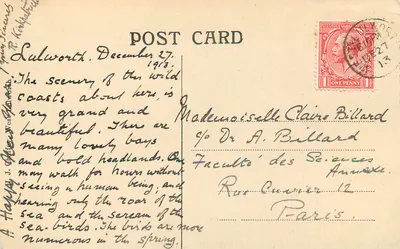 POST CARD
Lulworth. December 27.
1913.
The scenery of the wild
coasts about here, is
very grand and
beautiful. There are
many lovely bays
and bold headlands. One
may walk for hours without
seeing a human being; and
hearing only the roar of the
sea and the scream of the
sea-birds. The birds are more
numerous in the spring.
A Happy New
yours sincerely
Mademoiselle Claire Billard
c/o Dr A. Billard
Faculté des Sciences
Annexe
Rue Cuvier 12
Paris.
ONE PENNY
DE 27
13